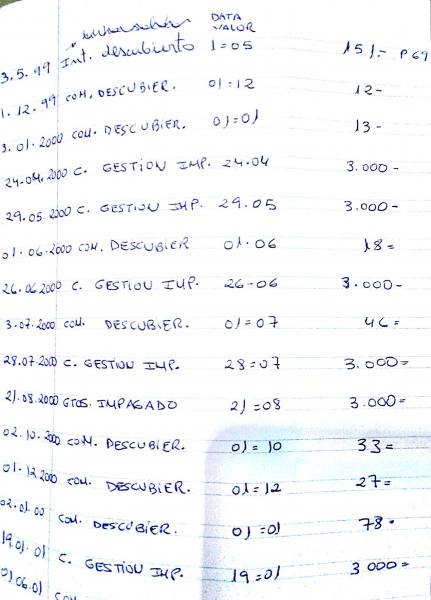 DATA
VALOR
3.5.99 Int. descubierto 1=05 151.- P69
1.12.99 COM. DESCUBIER. 01=12 12-
3.01.2000 COM. DESCUBIER. 01=01 13-
24-04.2000 C. GESTION IMP. 24.04 3.000-
29.05.2000 C. GESTION IMP. 29.05 3.000-
01.06-2000 COM. DESCUBIER 01.06 18=
26.06.2000 C. GESTION IMP. 26-06 3.000-
3.07.2000 COM. DESCUBIER. 01=07 46=
28.07.2000 C. GESTION IMP. 28=07 3.000=
21.08.2000 GTOS. IMPAGADO 21=08 3.000=
02.10.2000 COM. DESCUBIER. 01=10 33=
01.12.2000 COM. DESCUBIER. 01=12 27=
02.01.00 COM. DESCUBIER. 01=01 78.
19.01.01 C. GESTION IMP. 19=01 3000=
01.06.01 COM